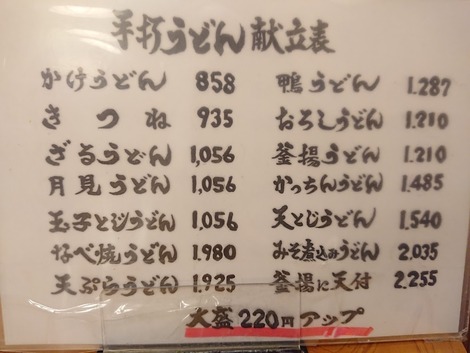 手打うどん献立表
かけうどん 858
きつね 935
ざるうどん 1,056
月見うどん 1,056
玉子とじうどん 1,056
なべ焼うどん 1.980
天ぷらうどん 1.925
鴨うどん 1.287
おろしうどん 1.210
釜揚うどん 1.210
かっちんうどん 1.485
天とじうどん 1.540
みそ煮込みうどん 2.035
釜揚に天付 2.255
大盛220円アップ